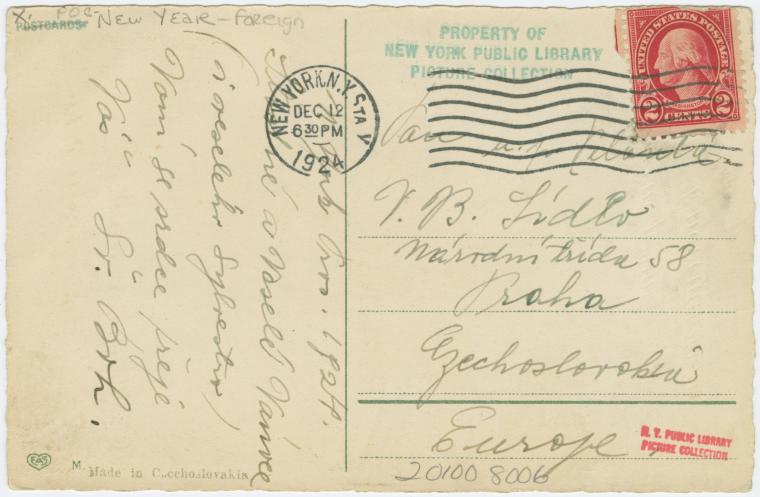 X. POC- NEW YEAR - Foreign
POSTCARDS
PROPERTY OF
NEW YORK PUBLIC LIBRARY
PICTURE COLLECTION
NEW YORK, N.Y. STA V
DEC 12
6 30 PM
1924
UNITED STATES POSTAGE
WASHINGTON
2 CENTS 2
1924.
a Veselé Vánoce
(i veselého Sylvestra)
Vám se srdce přeje
Váš
Pan
V. B. Sídlo
Národní třída 58
Praha
Czechoslovakia
Europe
N. Y. PUBLIC LIBRARY
PICTURE COLLECTION
20100 8006
EAS
M.
Made in Czechoslovakia